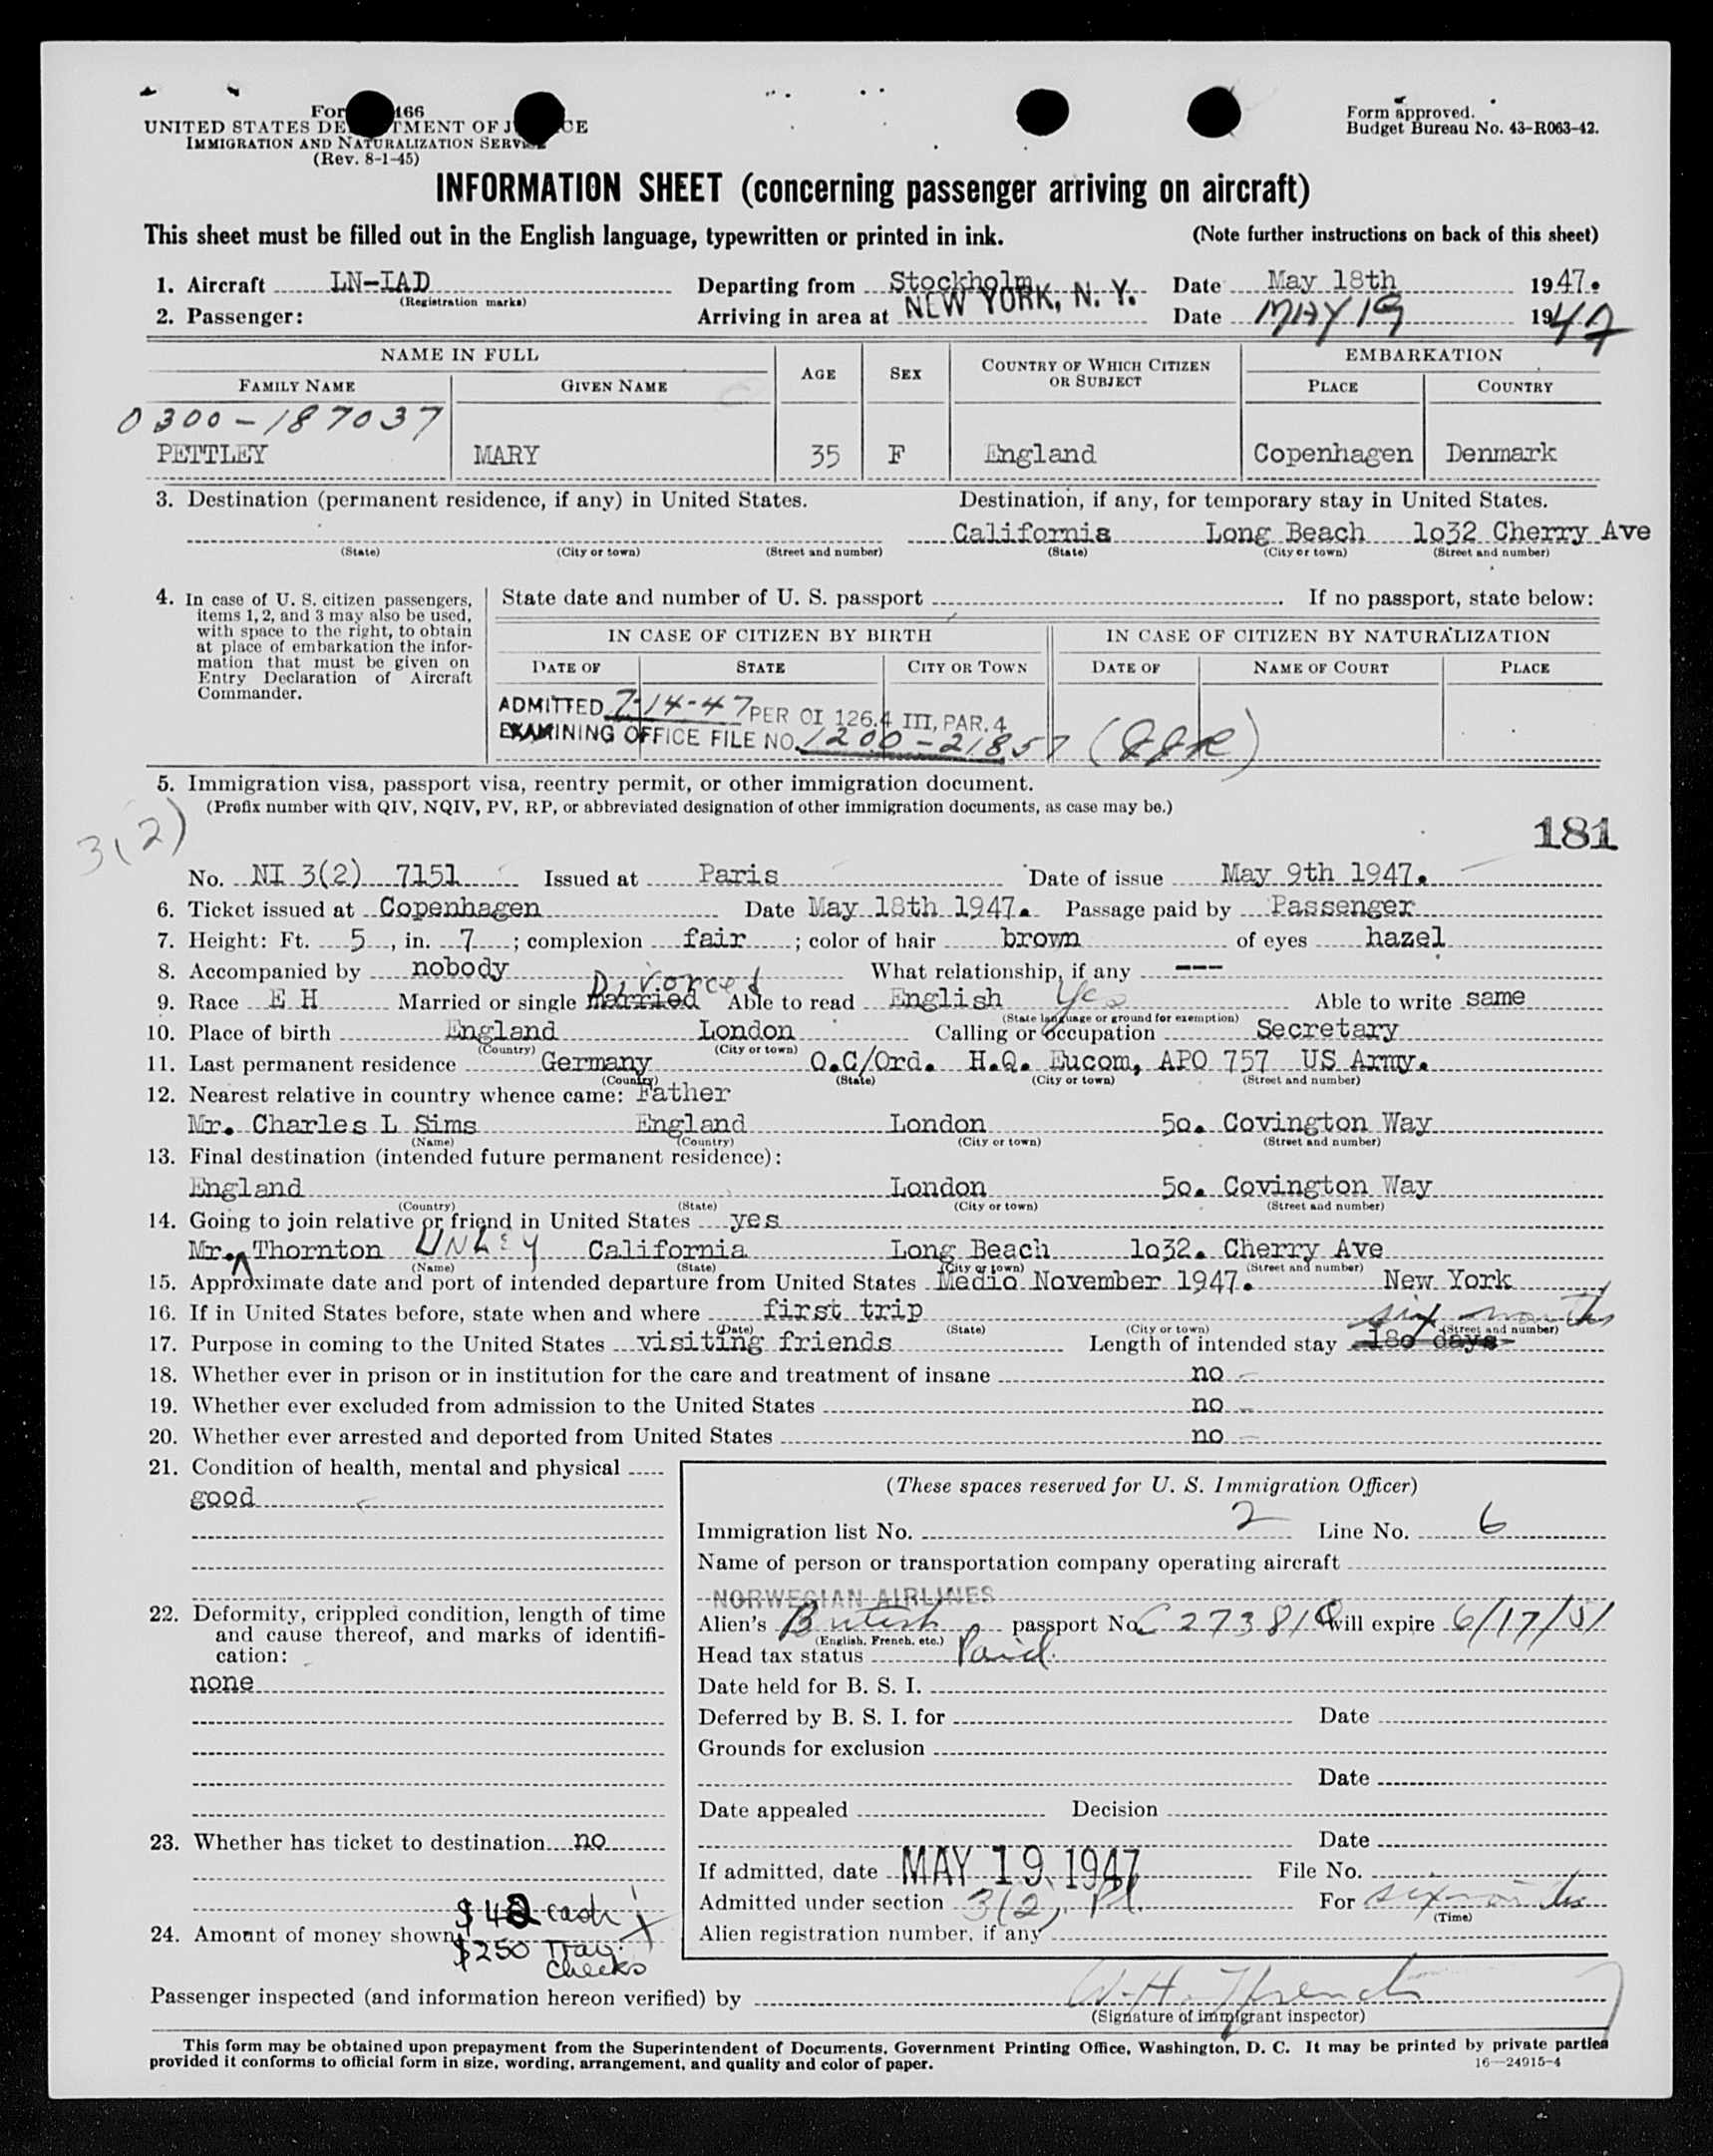 For 466
UNITED STATES DE TMENT OF J CE
IMMIGRATION AND NATURALIZATION SERV
(Rev. 8-1-45)
Form approved.
Budget Bureau No. 43-R063-42.
INFORMATION SHEET (concerning passenger arriving on aircraft)
This sheet must be filled out in the English language, typewritten or printed in ink. (Note further instructions on back of this sheet)
1. Aircraft LN-IAD Departing from Stockholm Date May 18th 1947.
(Registration marks)
2. Passenger: Arriving in area at NEW YORK, N. Y. Date MAY 19 1947
NAME IN FULL AGE SEX COUNTRY OF WHICH CITIZEN OR SUBJECT EMBARKATION
FAMILY NAME GIVEN NAME PLACE COUNTRY
0300-187037
PETTLEY MARY 35 F England Copenhagen Denmark
3. Destination (permanent residence, if any) in United States. Destination, if any, for temporary stay in United States.
California Long Beach 1o32 Cherry Ave
(State) (City or town) (Street and number) (State) (City or town) (Street and number)
4. In case of U. S. citizen passengers, items 1, 2, and 3 may also be used, with space to the right, to obtain at place of embarkation the information that must be given on Entry Declaration of Aircraft Commander.
State date and number of U. S. passport . If no passport, state below:
IN CASE OF CITIZEN BY BIRTH IN CASE OF CITIZEN BY NATURALIZATION
DATE OF STATE CITY OR TOWN DATE OF NAME OF COURT PLACE
ADMITTED 7-14-47 PER OI 126.4 III, PAR. 4
EXAMINING OFFICE FILE NO. 1200-21857
5. Immigration visa, passport visa, reentry permit, or other immigration document.
(Prefix number with QIV, NQIV, PV, RP, or abbreviated designation of other immigration documents, as case may be.)
3(2)
181
No. NI 3(2) 7151 Issued at Paris Date of issue May 9th 1947.
6. Ticket issued at Copenhagen Date May 18th 1947. Passage paid by Passenger
7. Height: Ft. 5, in. 7; complexion fair; color of hair brown of eyes hazel
8. Accompanied by nobody What relationship, if any ---
Divorced
9. Race E H Married or single married Able to read English Yes Able to write same
(State language or ground for exemption)
10. Place of birth England London Calling or occupation Secretary
(Country) (City or town)
11. Last permanent residence Germany O.C/Ord. H.Q. Eucom, APO 757 US Army.
(Country) (State) (City or town) (Street and number)
12. Nearest relative in country whence came: Father
Mr. Charles L Sims England London 5o. Covington Way
(Name) (Country) (City or town) (Street and number)
13. Final destination (intended future permanent residence):
England London 5o. Covington Way
(Country) (State) (City or town) (Street and number)
14. Going to join relative or friend in United States yes
Mr. Thornton California Long Beach 1o32. Cherry Ave
(Name) (State) (City or town) (Street and number)
15. Approximate date and port of intended departure from United States Medio November 1947. New York
16. If in United States before, state when and where first trip
six months
(Date) (State) (City or town) (Street and number)
17. Purpose in coming to the United States visiting friends Length of intended stay 18o days
18. Whether ever in prison or in institution for the care and treatment of insane no
19. Whether ever excluded from admission to the United States no
20. Whether ever arrested and deported from United States no
21. Condition of health, mental and physical
good
22. Deformity, crippled condition, length of time and cause thereof, and marks of identification:
none
23. Whether has ticket to destination no
24. Amount of money shown $42 cash
$250 Trav. Checks
(These spaces reserved for U. S. Immigration Officer)
Immigration list No. 2 Line No. 6
Name of person or transportation company operating aircraft
NORWEGIAN AIRLINES
Alien's British passport No. C 273818 will expire 6/17/51
(English, French, etc.)
Head tax status Paid.
Date held for B. S. I.
Deferred by B. S. I. for Date
Grounds for exclusion
Date
Date appealed Decision
Date
If admitted, date MAY 19 1947 File No.
Admitted under section 3(2), Pl. For six months
(Time)
Alien registration number, if any
Passenger inspected (and information hereon verified) by W. H. French
(Signature of immigrant inspector)
This form may be obtained upon prepayment from the Superintendent of Documents, Government Printing Office, Washington, D. C. It may be printed by private parties
provided it conforms to official form in size, wording, arrangement, and quality and color of paper. 16—24915-4